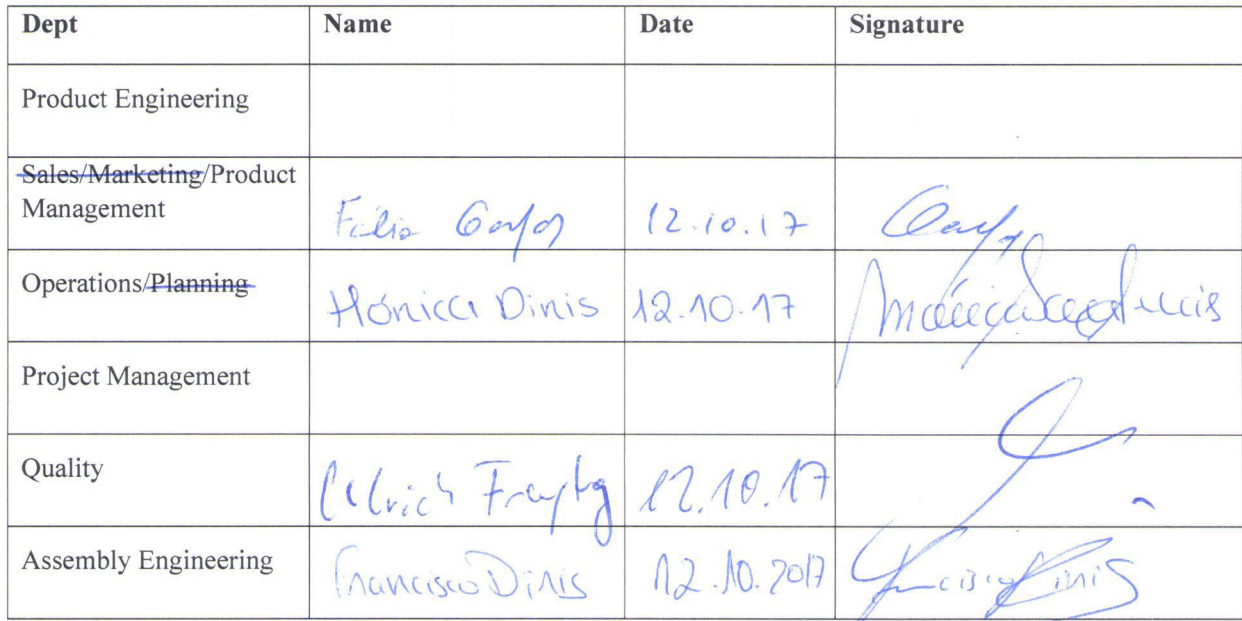 Dept Name Date Signature
Product Engineering
Sales/Marketing/Product
Management 12.10.17
Operations/Planning Mónica Dinis 12.10.17
Project Management
Quality Ulrich Freytag 12.10.17
Assembly Engineering Francisco Dinis 12.10.2017 Francisco Dinis